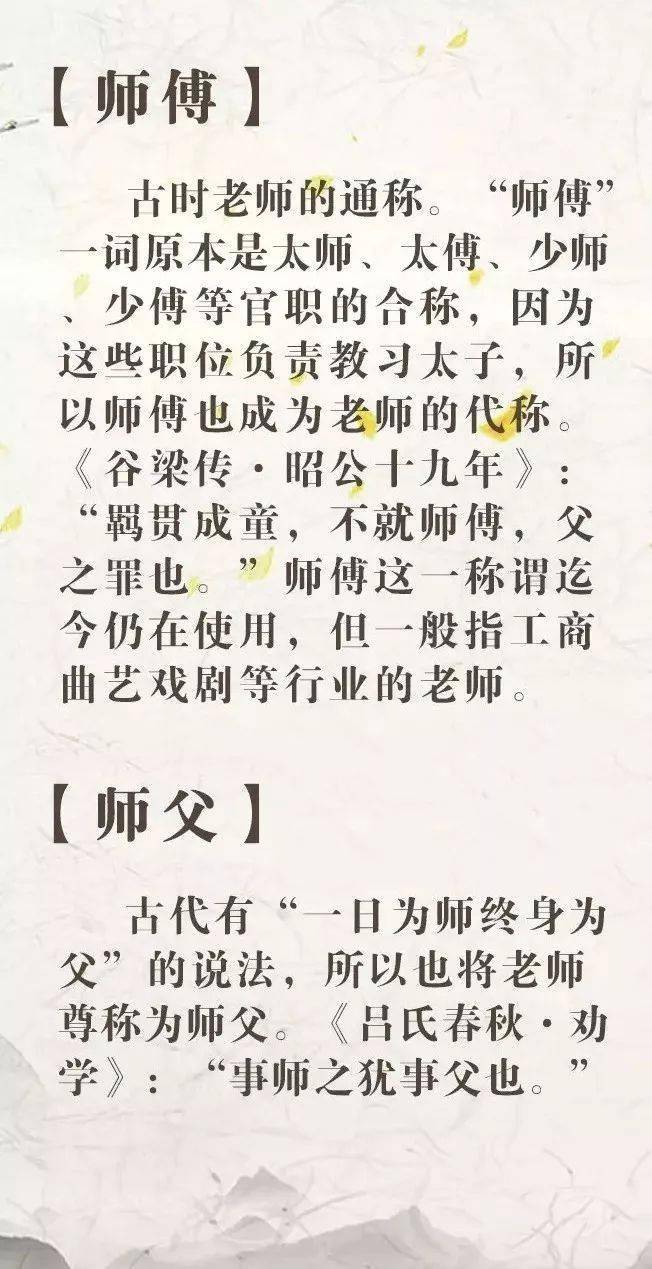 【师傅】
古时老师的通称。“师傅”
一词原本是太师、太傅、少师
、少傅等官职的合称，因为
这些职位负责教习太子，所
以师傅也成为老师的代称。
《谷梁传·昭公十九年》：
“羁贯成童，不就师傅，父
之罪也。”师傅这一称谓迄
今仍在使用，但一般指工商
曲艺戏剧等行业的老师。
【师父】
古代有“一日为师终身为
父”的说法，所以也将老师
尊称为师父。《吕氏春秋·劝
学》：“事师之犹事父也。”